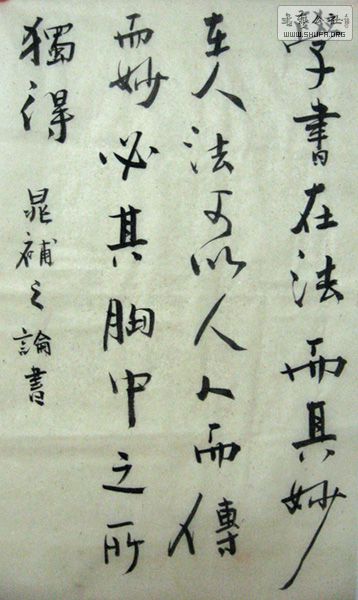 学書在法而其妙
在人法可以人人而傳
而妙必其胸中之所
獨得 晁補之論書
WWW.SHUFA.ORG